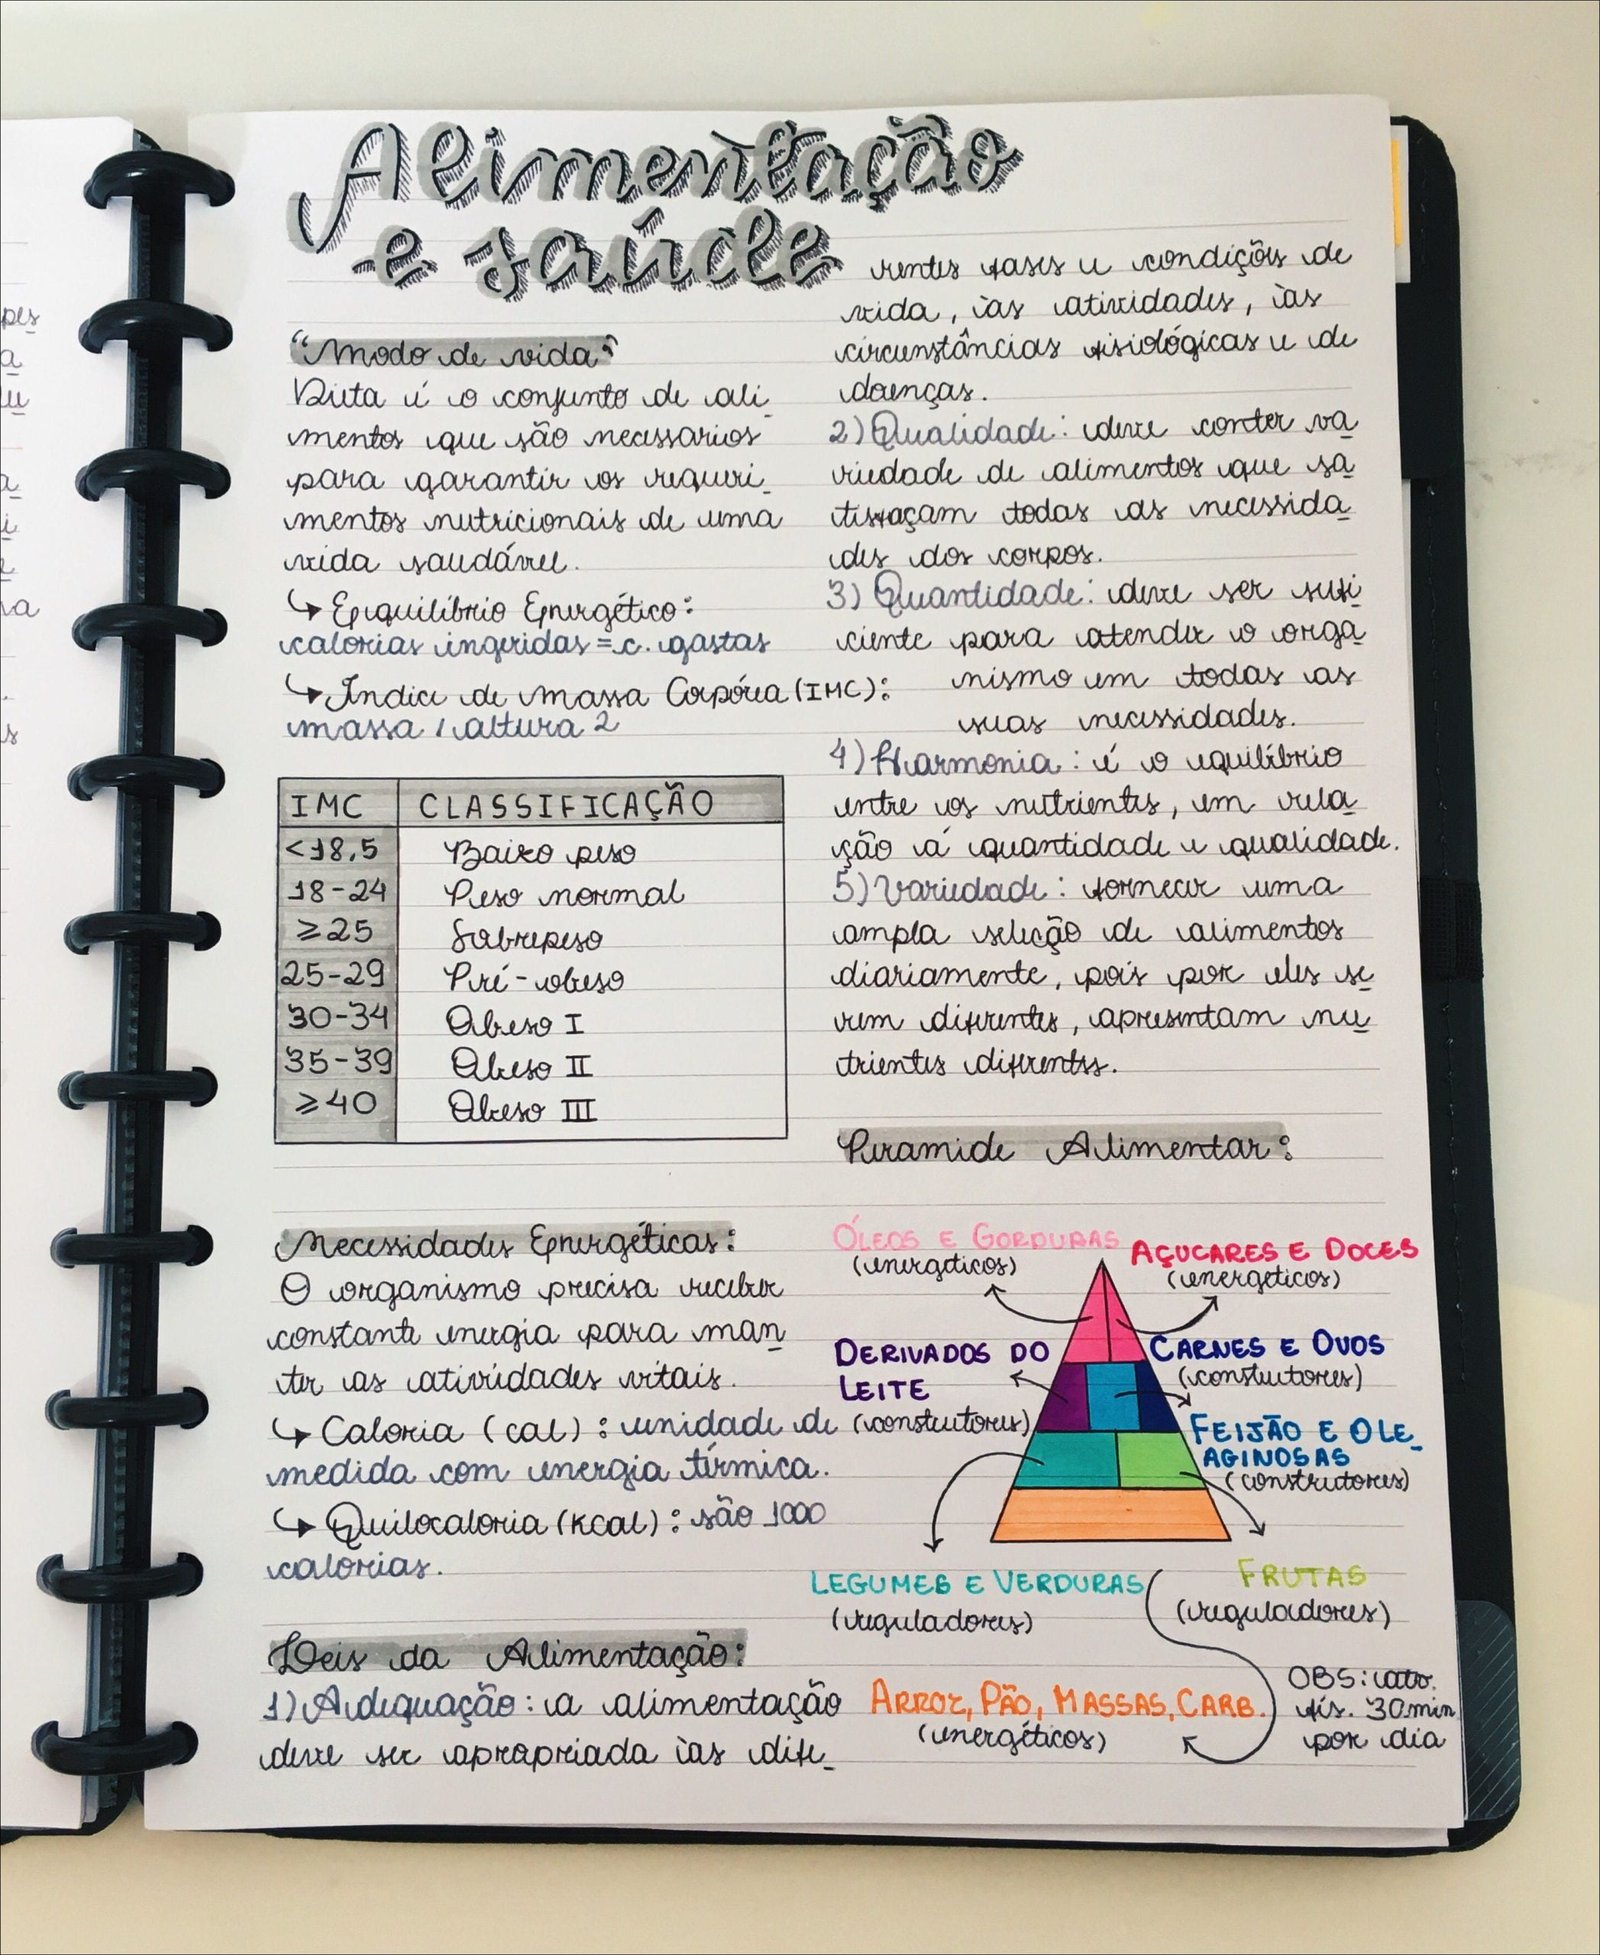 Alimentação
e saúde
"Modo de vida"
Dieta é o conjunto de ali_
mentos que são necessarios
para garantir os requeri_
mentos nutricionais de uma
vida saudável.
↳ Equilíbrio Energético:
calorias ingeridas = c. gastas
↳ Índice de Massa Corpórea (IMC):
massa / altura 2
IMC CLASSIFICAÇÃO
<18,5 Baixo peso
18-24 Peso normal
≥25 Sobrepeso
25-29 Pré-obeso
30-34 Obeso I
35-39 Obeso II
≥40 Obeso III
Necessidades Energéticas:
O organismo precisa receber
constante energia para man_
ter as atividades vitais.
↳ Caloria (cal): unidade de
medida com energia térmica.
↳ Quilocaloria (Kcal): são 1000
calorias.
Leis da Alimentação:
1) Adequação: a alimentação
deve ser apropriada às dife_
rentes fases e condições de
vida, às atividades, às
circunstâncias fisiológicas e de
doenças.
2) Qualidade: deve conter va_
riedade de alimentos que sa_
tisfaçam todas as necessida_
des dos corpos.
3) Quantidade: deve ser sufi_
ciente para atender o orga_
nismo em todas as
suas necessidades.
4) Harmonia: é o equilíbrio
entre os nutrientes, em rela_
ção á quantidade e qualidade.
5) Variedade: fornecer uma
ampla seleção de alimentos
diariamente, pois por eles se_
rem diferentes, apresentam nu_
trientes diferentes.
Piramide Alimentar:
ÓLEOS E GORDURAS
(energéticos)
AÇUCARES E DOCES
(energéticos)
DERIVADOS DO
LEITE
(construtores)
CARNES E OVOS
(construtores)
FEIJÃO E OLE_
AGINOSAS
(construtores)
LEGUMES E VERDURAS
(reguladores)
FRUTAS
(reguladores)
ARROZ, PÃO, MASSAS, CARB.
(energéticos)
OBS: ativ.
fís. 30min
por dia